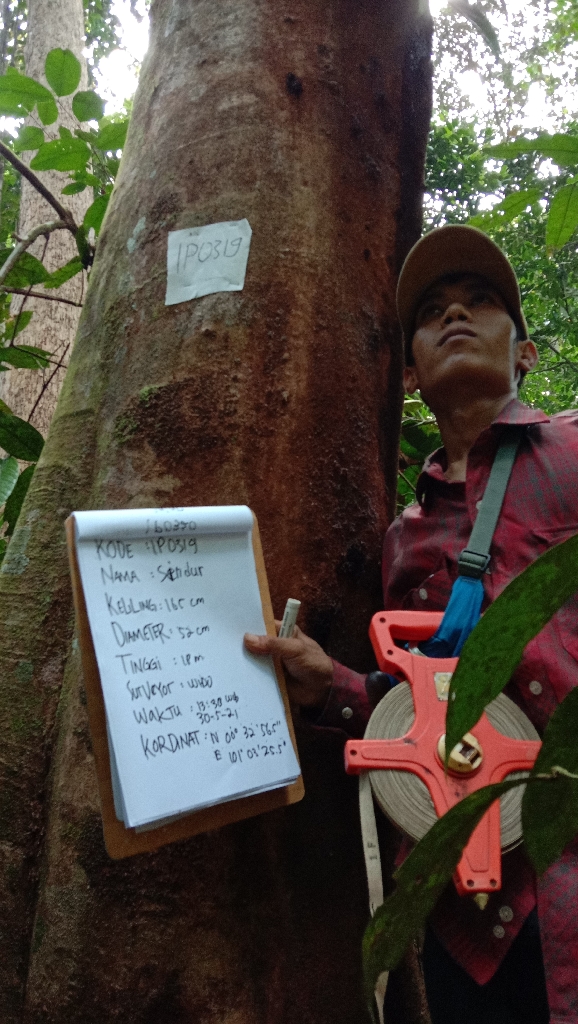 1P0319
KODE : 1P0319
NAMA : Sindur
KELILING : 165 cm
DIAMETER : 52 cm
TINGGI : 18 m
SURVEYOR : WIDO
WAKTU : 13:30 WIB
30-5-21
KORDINAT : N 00° 32' 56.5"
E 101° 03' 25.5"